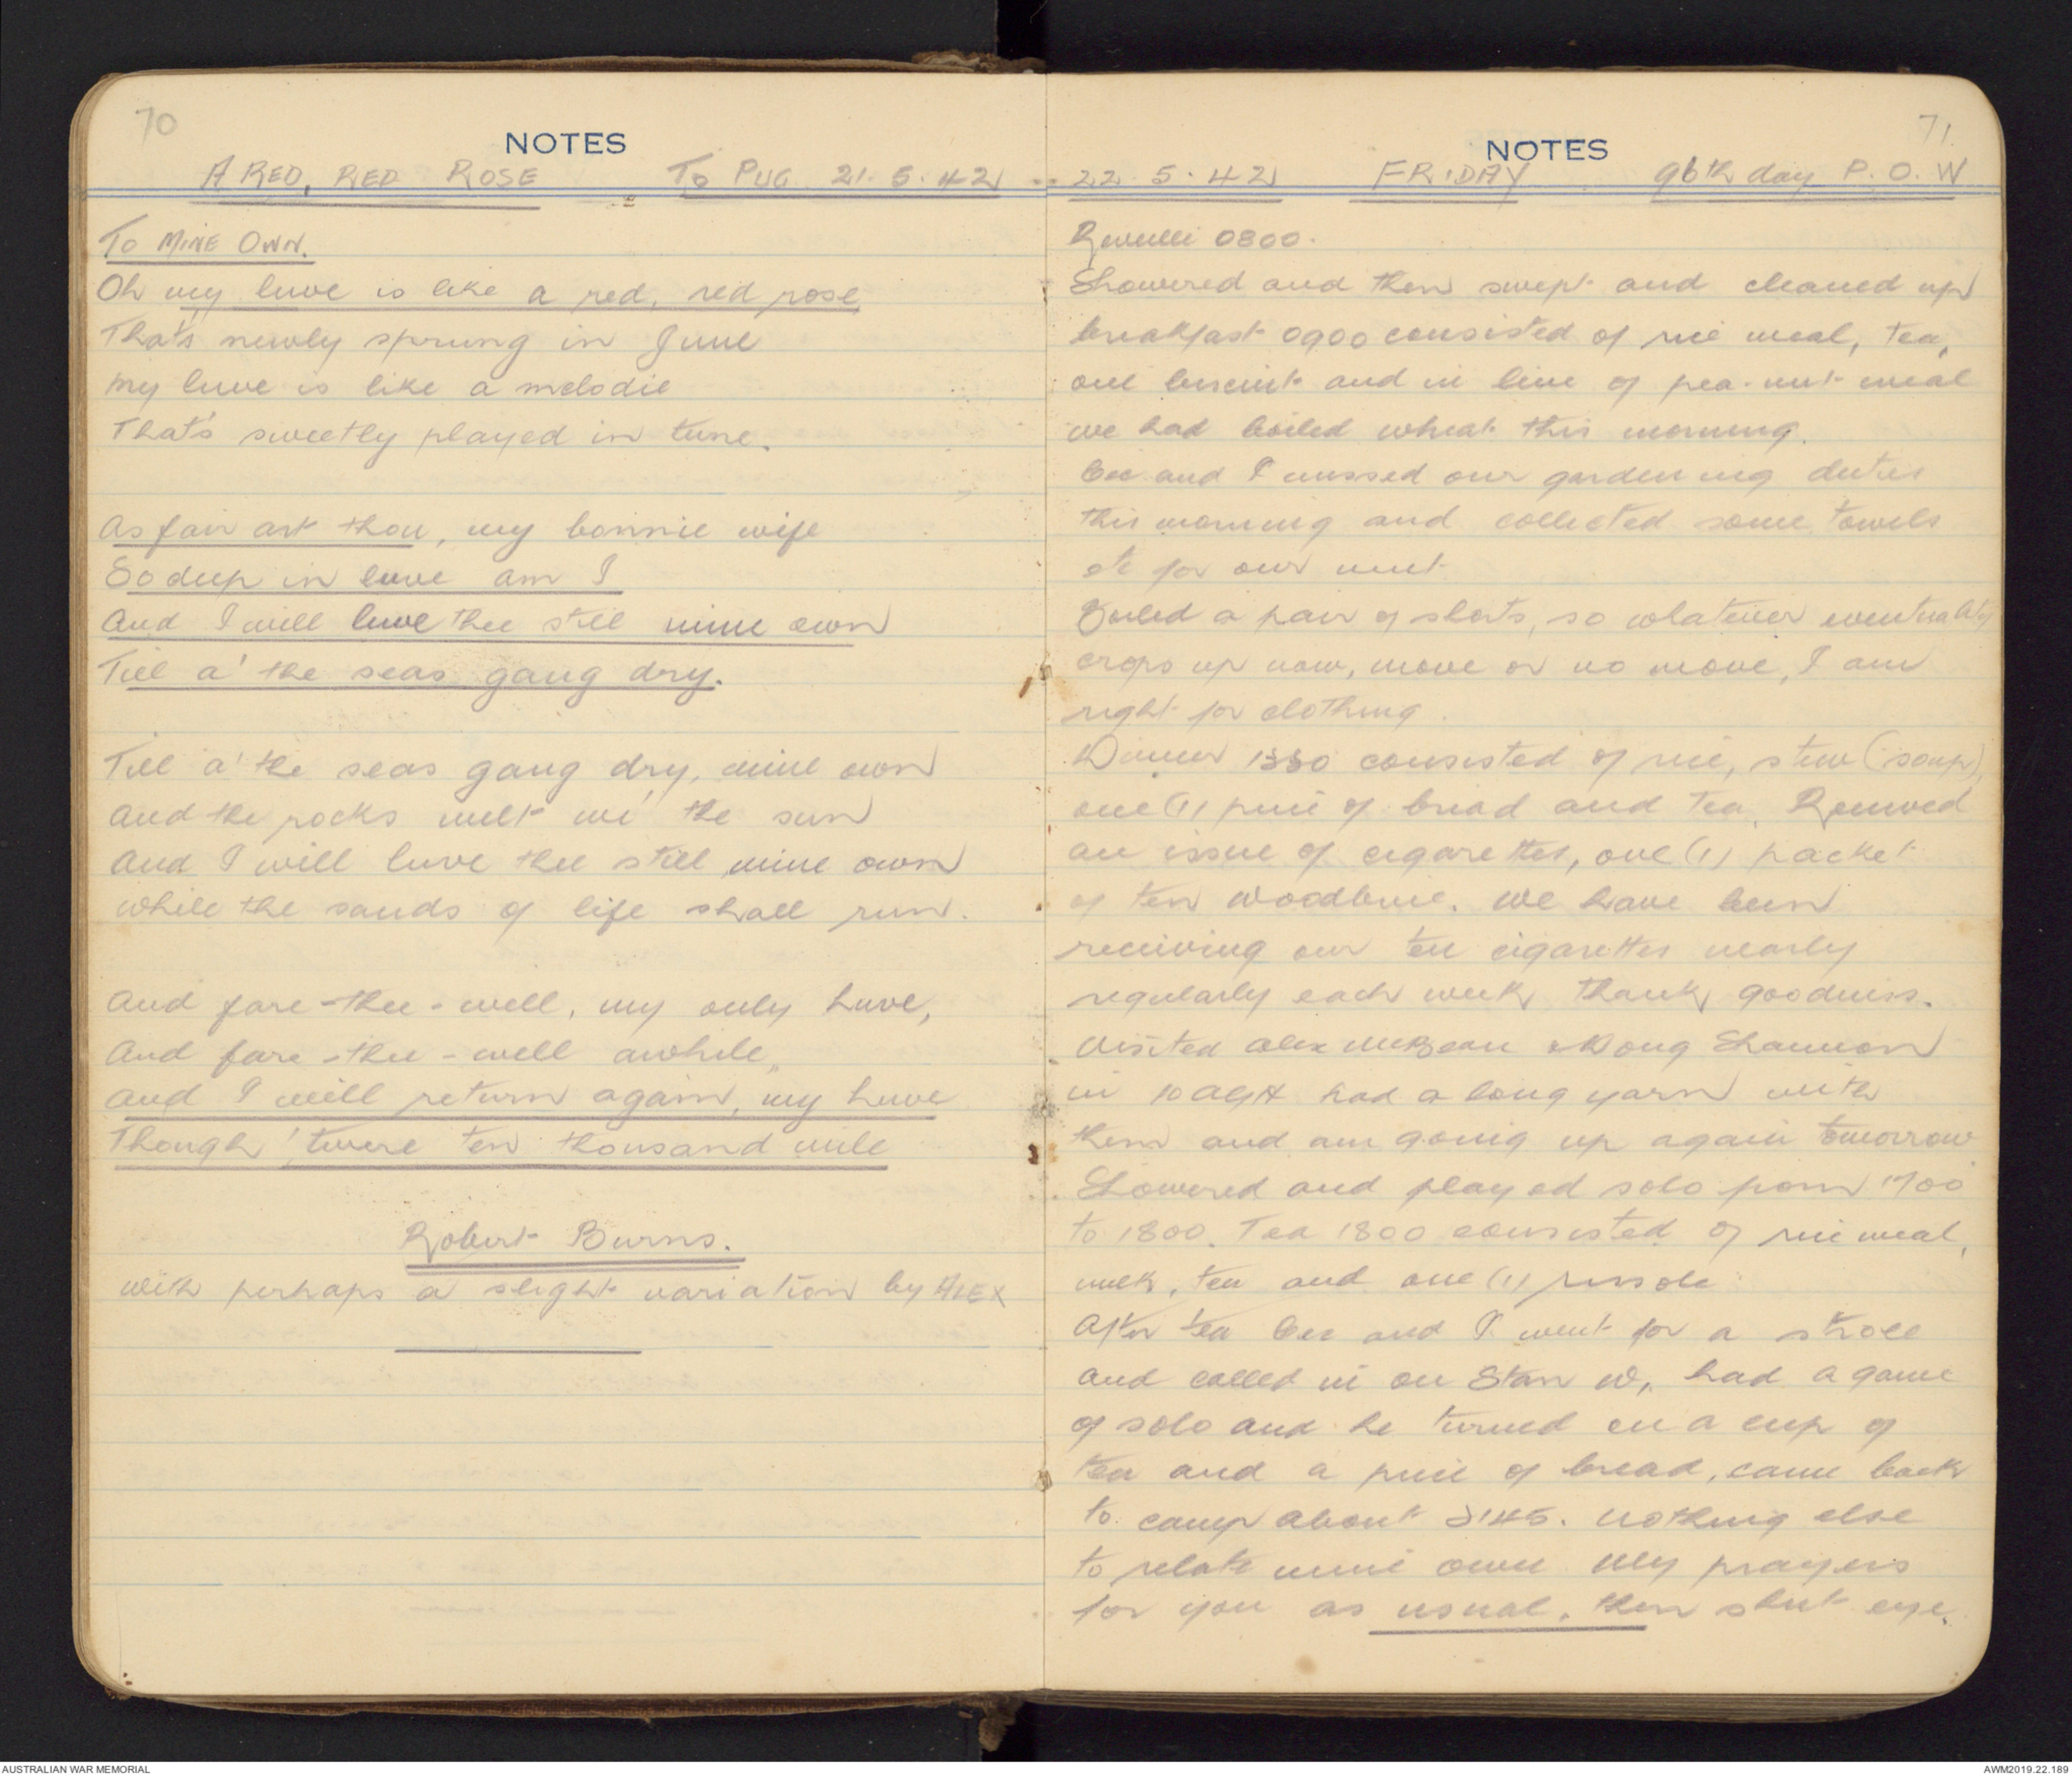 70
NOTES
A RED, RED ROSE To PUG 21.5.42
To MINE OWN.
Oh my luve is like a red, red rose
That's newly sprung in June
my luve is like a melodie
That's sweetly played in tune.
As fair art thou, my bonnie wife
So deep in luve am I
And I will luve thee still mine own
Till a' the seas gang dry.
Till a' the seas gang dry, mine own
And the rocks melt wi' the sun
And I will luve thee still mine own
while the sands of life shall run.
And fare-thee-well, my only luve,
And fare-thee-well awhile,
And I will return again, my luve
Though 'twere ten thousand mile
Robert Burns.
with perhaps a slight variation by ALEX
71
NOTES
22.5.42 FRIDAY 96th day P.O.W
Reveille 0800.
Showered and then swept and cleaned up
breakfast 0900 consisted of rice meal, tea,
one biscuit and in lieu of pea-nut meal
we had boiled wheat this morning.
Cec and I missed our gardening duties
this morning and collected some towels
etc for our unit
Boiled a pair of shorts, so whatever eventuality
crops up now, move or no move, I am
right for clothing.
Dinner 1330 consisted of rice, stew (soup),
one (1) piece of bread and tea. Received
an issue of cigarettes, one (1) packet
of ten Woodbine. We have been
receiving our ten cigarettes nearly
regularly each week, thank goodness.
Visited Alex McBean & Doug Shannon
in 10 AGH had a long yarn with
them and am going up again tomorrow
Showered and played solo from 1700
to 1800. Tea 1800 consisted of rice meal,
milk, tea and one (1) rissole
After tea Cec and I went for a stroll
and called in on Stan W, had a game
of solo and he turned on a cup of
tea and a piece of bread, came back
to camp about 2145. Nothing else
to relate mine own. My prayers
for you as usual, then shut eye.
AUSTRALIAN WAR MEMORIAL
AWM2019.22.189